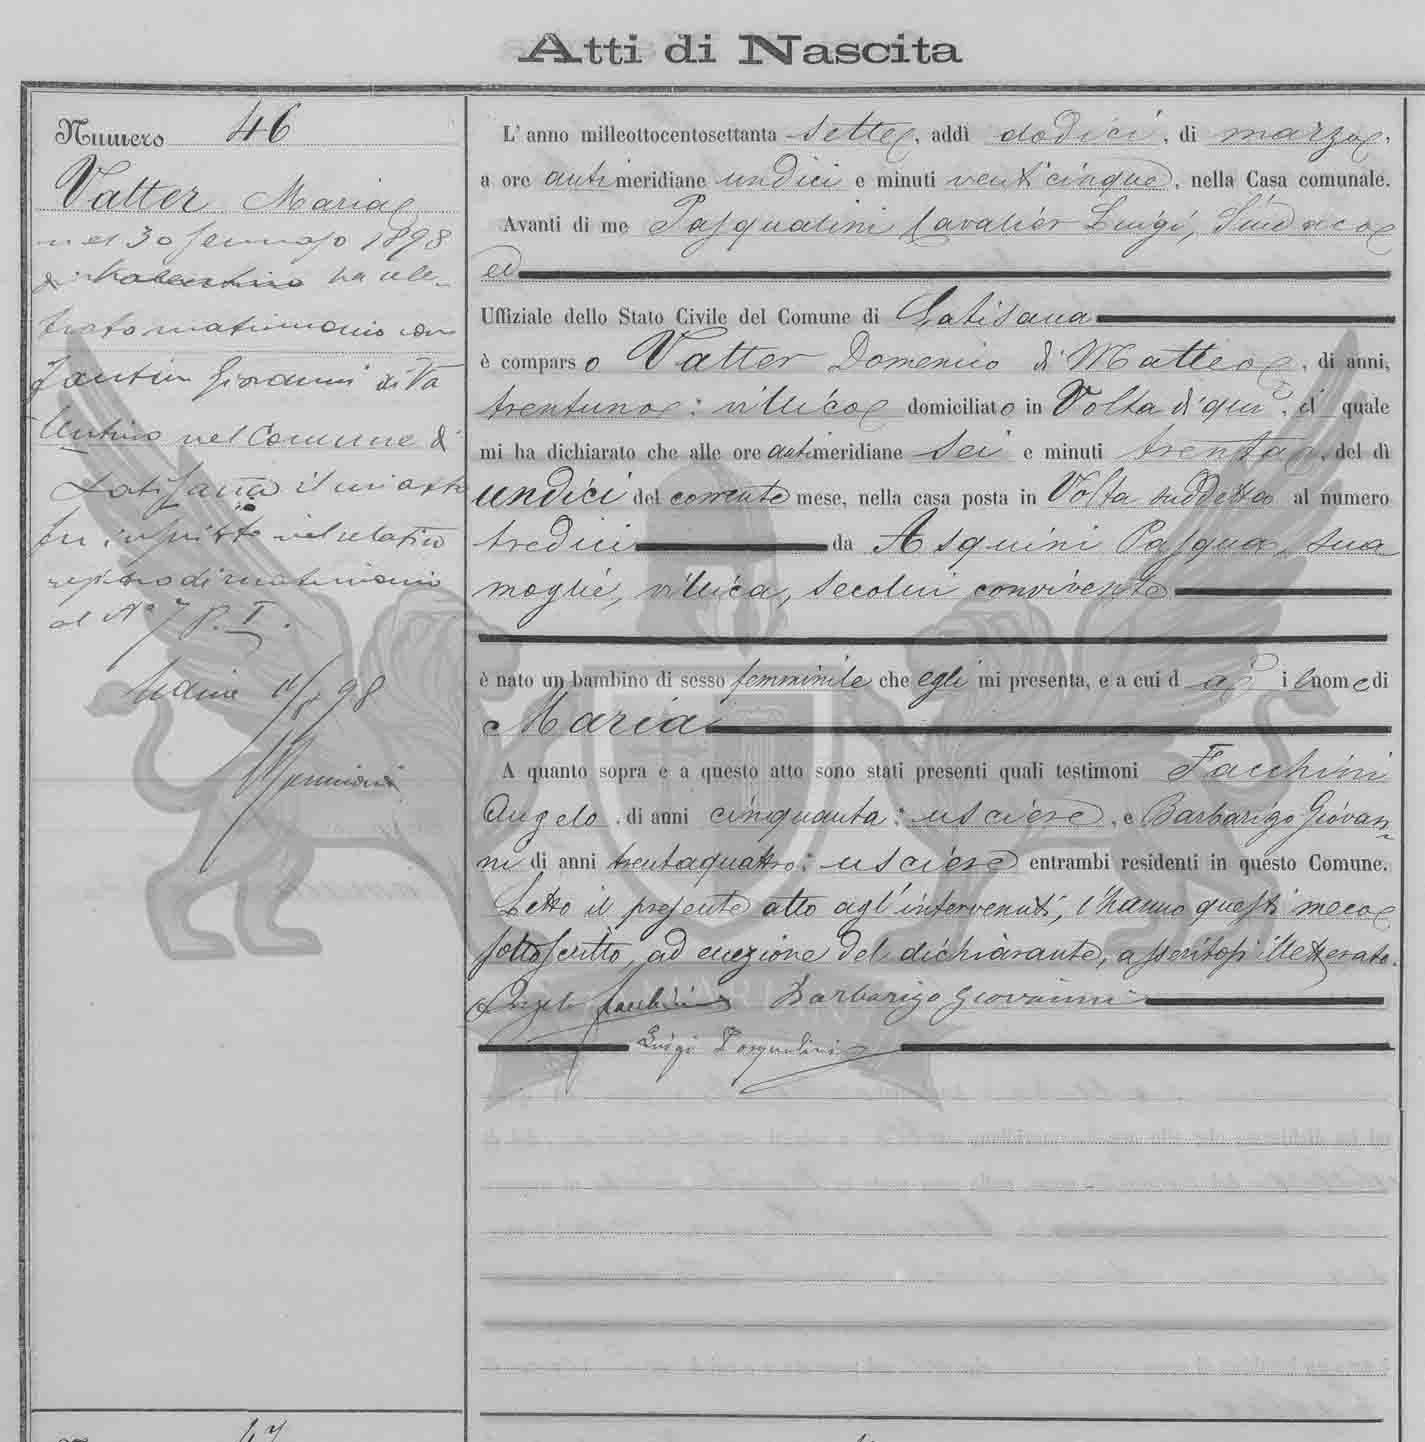 Atti di Nascita
Numero 46
Vatter Maria
nel 30 gennajo 1898
ha cele-
brato matrimonio con
Fantin Giovanni di Va
lentino nel Comune di
Latisana il cui atto
fu inscritto nel relativo
registro di matrimoni
al N° 7 P. I.
Udine 11/8 98
L' anno milleottocentosettanta sette, addì dodici, di marzo,
a ore antimeridiane undici e minuti venticinque, nella Casa comunale.
Avanti di me Pasqualini Cavalier Luigi, Sindaco
ed
Uffiziale dello Stato Civile del Comune di Latisana
è comparso Vatter Domenico di Matteo, di anni,
trentuno; villico domiciliato in Volta di qui, il quale
mi ha dichiarato che alle ore antimeridiane sei e minuti trenta, del dì
undici del corrente mese, nella casa posta in Volta suddetta al numero
tredici da Asquini Pasqua, sua
moglie, villica, secolui convivente
è nato un bambino di sesso femminile che egli mi presenta, e a cui dà il nome di
Maria
A quanto sopra e a questo atto sono stati presenti quali testimoni Facchini
Angelo, di anni cinquanta; usciere, e Barbarigo Giovan-
ni di anni trentaquattro; usciere entrambi residenti in questo Comune.
Letto il presente atto agl'intervenuti, l'hanno questi meco
sottoscritto, ad eccezione del dichiarante, asseritosi illetterato.
Angelo Facchini Barbarigo Giovanni
Luigi Pasqualini
47